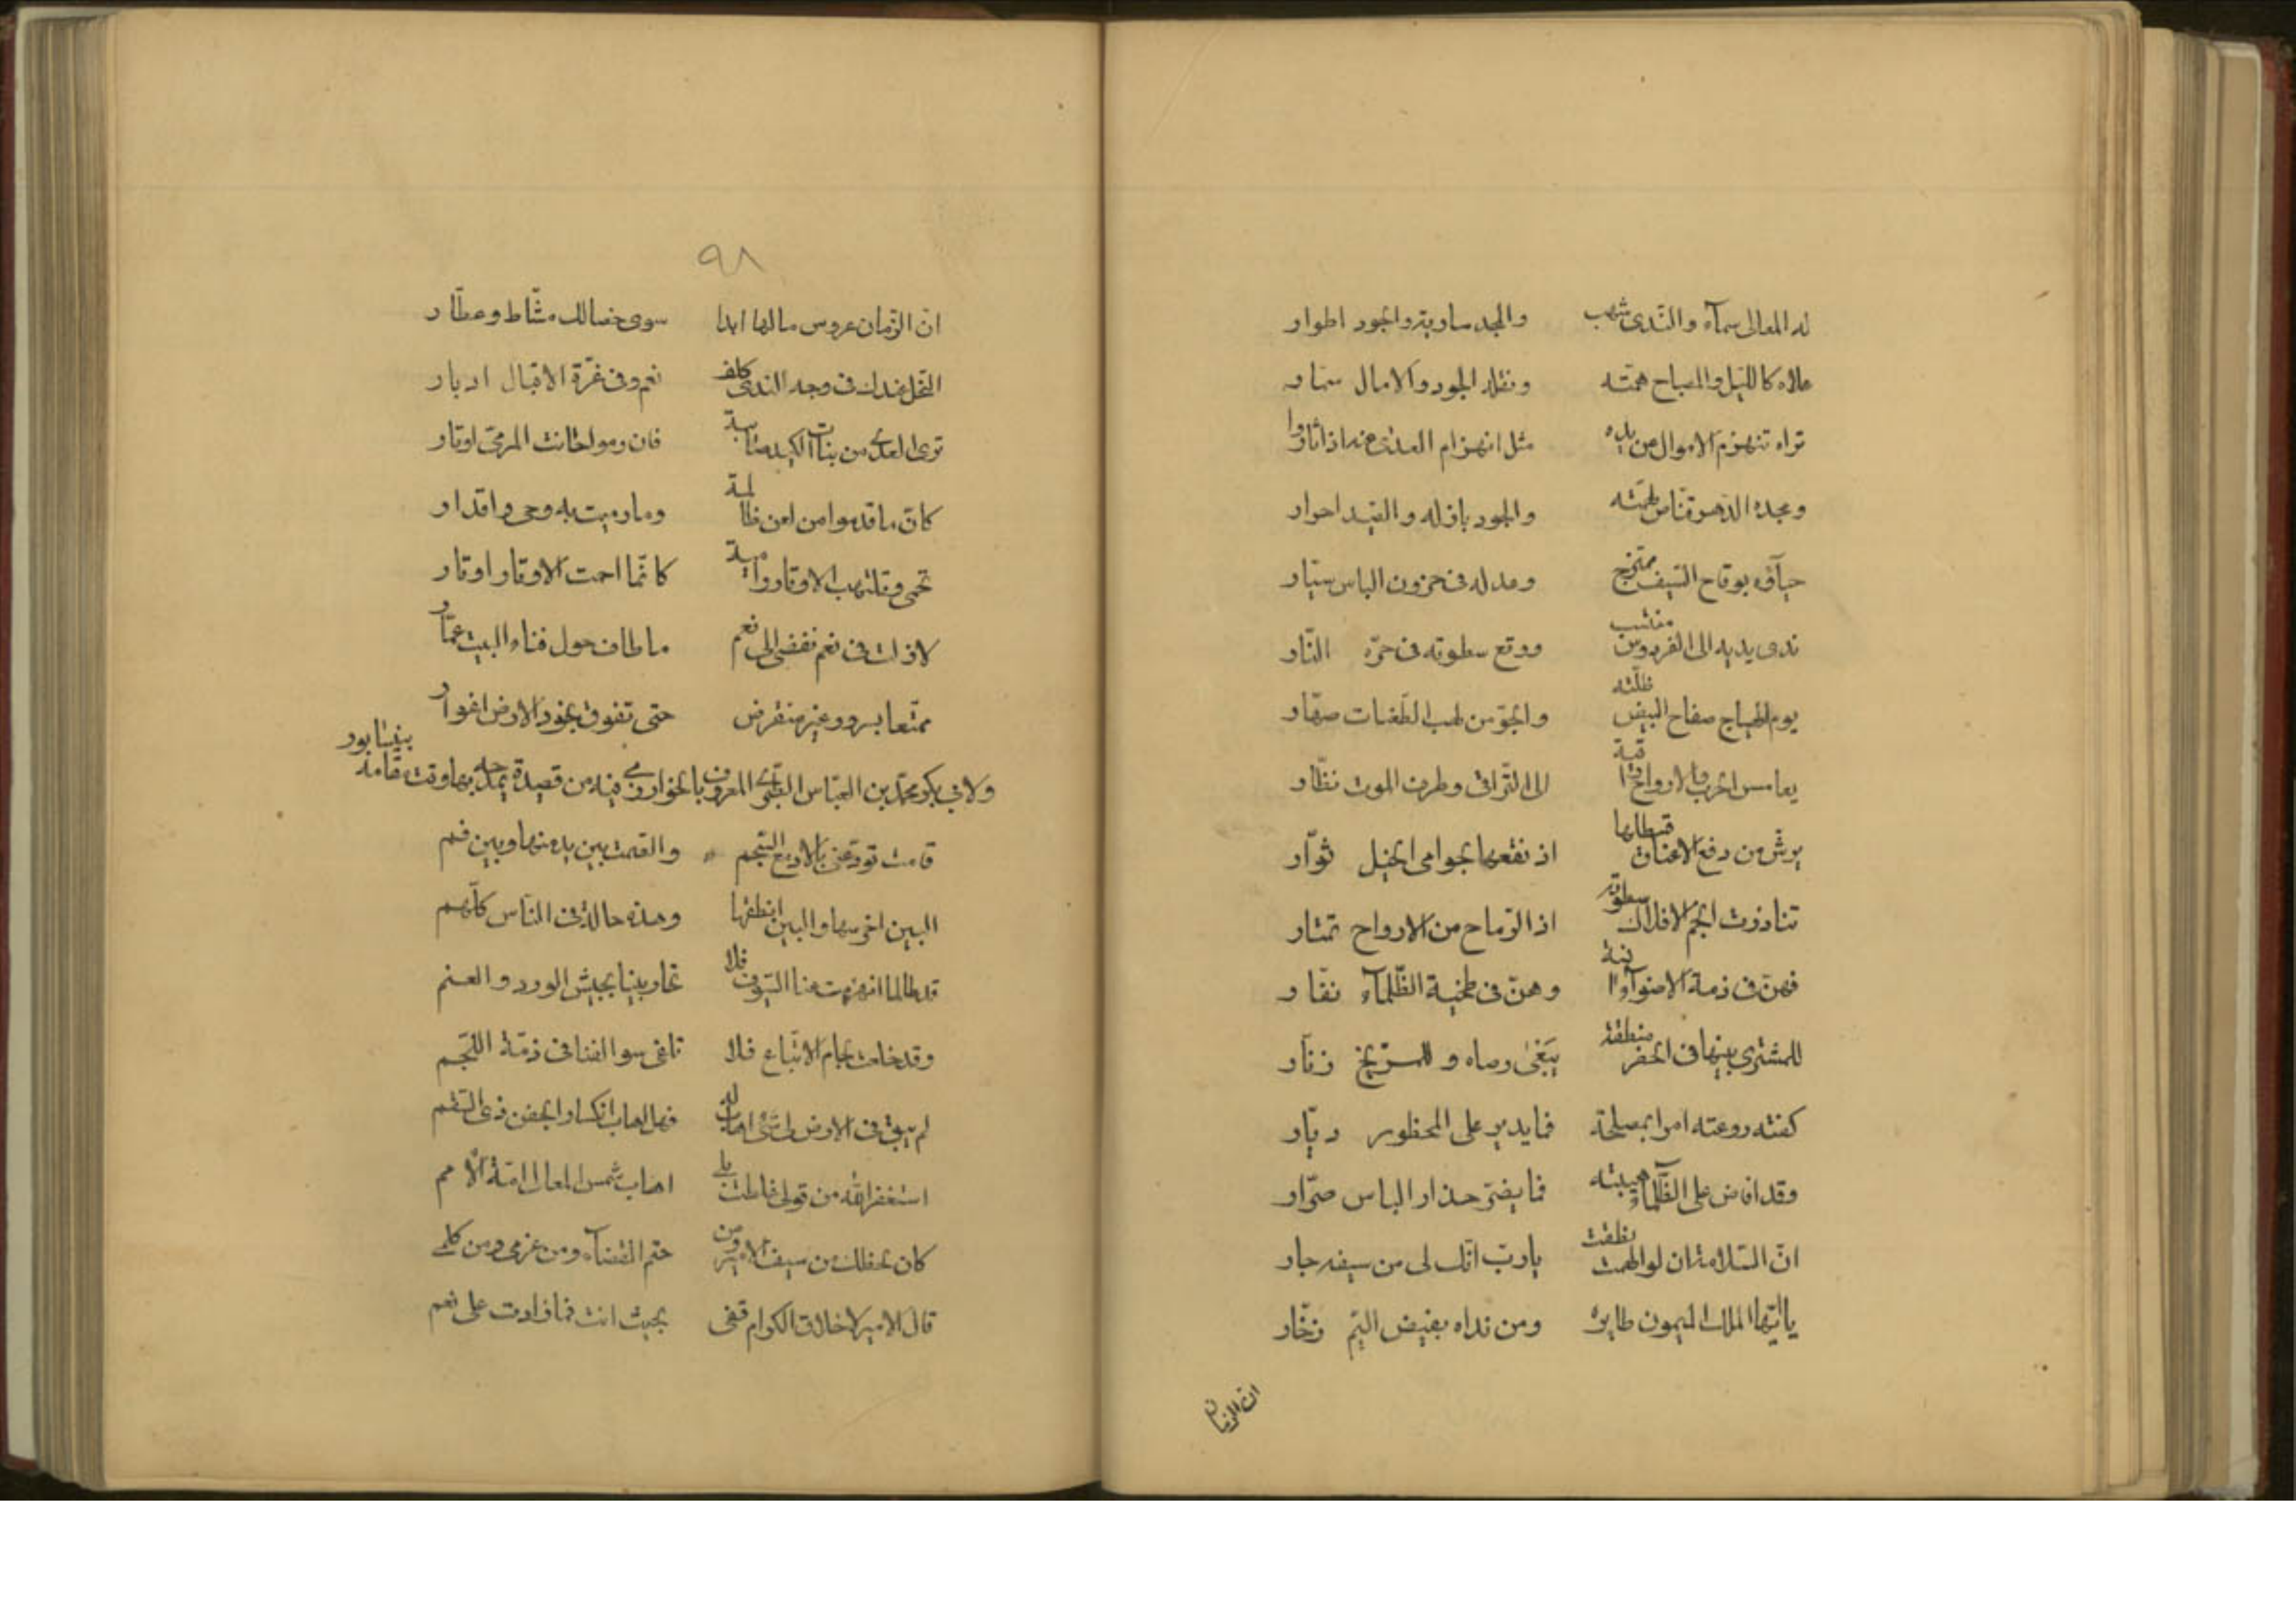 له المعالى سمآء والنّدى شهب والمجد سارية والجود اطوار
علاه كالليل والمصباح همّته الجود والامال
تراه تنهزم الاموال من يده مثل انهزام العدى منه اذا ثاروا
ومجده الدّهر قنّاص والجود باذله والصّيد احرار
حيآؤه بوقاح السّيف ممتزج وعدله فى حزون الباس سيّار
ندى يديه الى الفردوس منتسب ووقع سطوته فى حرّه النّار
يوم الهياج صفاح البيض ظلّته والجوّ من لهب الطّعنات
الحرب والارواح راقية الى التّراقى وطرف الموت نظّار
من دفع الاعناق قسطلها اذ نقعها بحوامى الخيل ثوّار
انجم الافلاك سطوته اذ الرّماح من الارواح تمتار
فهنّ فى ذمة الاضوآء وهنّ فى الظّلمآء
للمشترى بينها فى الخضر منطقة رضاه وللمرّيخ زنّار
كفته روعته امرا بمصلحة فما يدير على المحظور ديّار
وقد افاض على الظّلمآء هيبته فما حذار الباس صرّار
انّ السّلامة ان لو الهمت نطقت يا ربّ انّك لى من سيفه جار
يا ايّها الملك الميمون طايره ومن نداه بفيض اليّم زخّار
ان الزمان
٩٨
انّ الزّمان عروس ما لها ابدا سوى خصالك مشّاط وعطّار
البخل عندك فى وجه الندى كلف نعم وفى غرّة الاقبال ادبار
ترى العدى من بنات الكيد صائبة فان رموا خانت المرمىّ اوتار
كانّ ما قدموا من لعن ظالمة وما رميت به وحى واقدار
تحمى الاوتار كانّما احمت الاوتار اوتار
لا زلت فى نعم تفضى الى نعم ما طاف حول فناء البيت عمّار
ممتّعا بسرور غير منقرض حتى تفوق نجود الارض اغوار
ولابى بكر محمّد بن العبّاس الطبرى المعروف بالخوارزمى فيه من قصيدة يمدحه بها وقت مقامه بنيسابور
قامت تودّعنى بالادمع السّجم والصّمت بين يد منها وبين فم
البين اخرسها والبين انطقها وهذه حالة فى النّاس كلّهم
قد طالما انهزمت عنا السّيوف فلا تحاربينا بجيش الورد والعنم
وقد خلعت لجام الاتّباع فلا فى ذمّة اللّجم
لم يبق فى الارض لى شىء اهاب له فهل اهاب انكسار الجفن ذى السّقم
استغفر الله من قولى غلطت بلى اهاب شمس المعالى امّة الامم
كان لحظك من سيف الامير ومن حتم القضآء ومن عزمى ومن كلمى
قال الامير لاخلاق الكرام قفى بحيث انت فما زادت على نعم